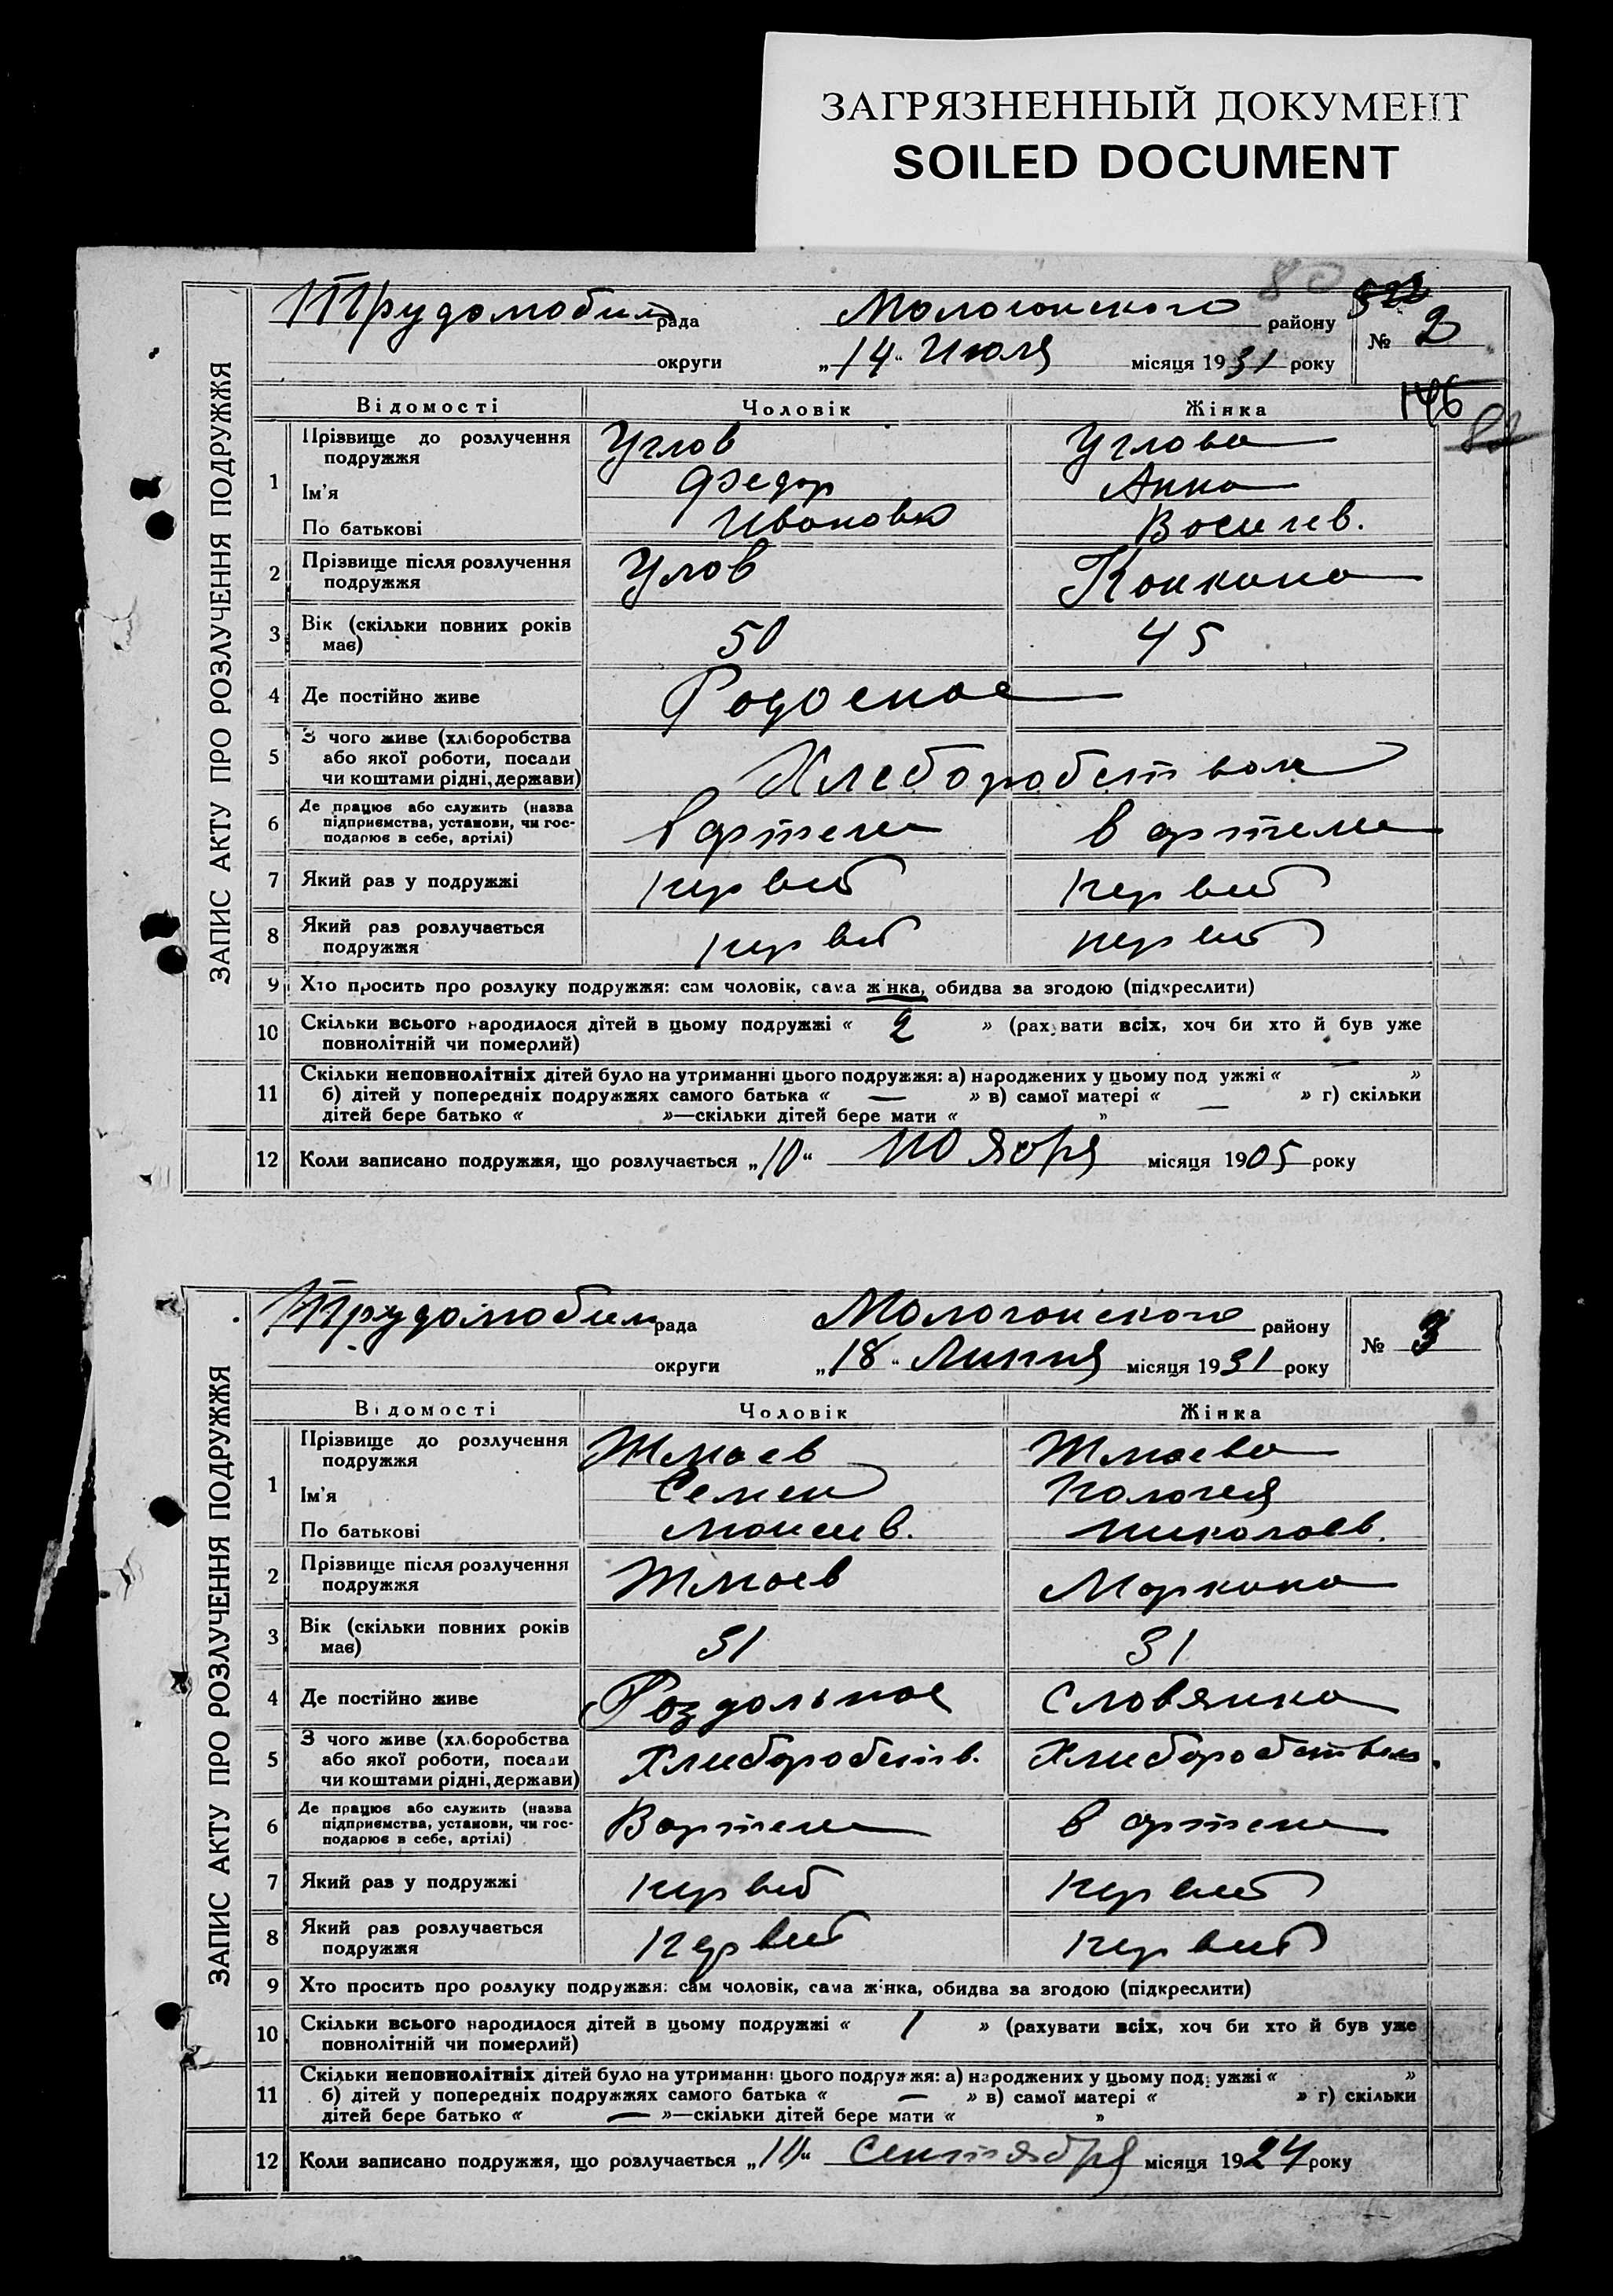 ЗАГРЯЗНЕННЫЙ ДОКУМЕНТ
SOILED DOCUMENT
80
ЗАПИС АКТУ ПРО РОЗЛУЧЕННЯ ПОДРУЖЖЯ
Трудолюбим рада Мологонского району № 2
округи „14“ Июля місяця 1931 року
146
Відомості Чоловік Жінка
1 Прізвище до розлучення подружжя Углов Углова
Ім'я Федор Анна
По батькові Иванов Васильев.
2 Прізвище після розлучення подружжя Углов
3 Вік (скільки повних років має) 50 45
4 Де постійно живе
5 З чого живе (хліборобства або якої роботи, посади чи коштами рідні, держави) Хлеборобством
6 Де працює або служить (назва підприємства, установи, чи господарює в себе, артілі) в артели в артели
7 Який раз у подружжі первый первый
8 Який раз розлучається подружжя первый первый
9 Хто просить про розлуку подружжя: сам чоловік, сама жінка, обидва за згодою (підкреслити)
10 Скільки всього народилося дітей в цьому подружжі « 2 » (рахувати всіх, хоч би хто й був уже
повнолітній чи померлий)
11 Скільки неповнолітніх дітей було на утриманні цього подружжя: а) народжених у цьому подружжі « — »
б) дітей у попередніх подружжях самого батька « — » в) самої матері « — » г) скільки
дітей бере батько « »—скільки дітей бере мати « »
12 Коли записано подружжя, що розлучається „10“ ноября місяця 1905 року
ЗАПИС АКТУ ПРО РОЗЛУЧЕННЯ ПОДРУЖЖЯ
Трудолюбим рада Мологонского району № 3
округи „18“ Липня місяця 1931 року
Відомості Чоловік Жінка
1 Прізвище до розлучення подружжя Жмаев Жмаева
Ім'я Семен Палагея
По батькові Моисеев. Николаев.
2 Прізвище після розлучення подружжя Жмаев Маркина
3 Вік (скільки повних років має) 31 31
4 Де постійно живе Роздольное Словянка
5 З чого живе (хліборобства або якої роботи, посади чи коштами рідні, держави) Хлиборобств. Хлиборобством.
6 Де працює або служить (назва підприємства, установи, чи господарює в себе, артілі) В артели в артели
7 Який раз у подружжі первый первый
8 Який раз розлучається подружжя первый первый
9 Хто просить про розлуку подружжя: сам чоловік, сама жінка, обидва за згодою (підкреслити)
10 Скільки всього народилося дітей в цьому подружжі « 1 » (рахувати всіх, хоч би хто й був уже
повнолітній чи померлий)
11 Скільки неповнолітніх дітей було на утриманні цього подружжя: а) народжених у цьому подружжі « »
б) дітей у попередніх подружжях самого батька « — » в) самої матері « » г) скільки
дітей бере батько « — »—скільки дітей бере мати « »
12 Коли записано подружжя, що розлучається „14“ Сентября місяця 1924 року